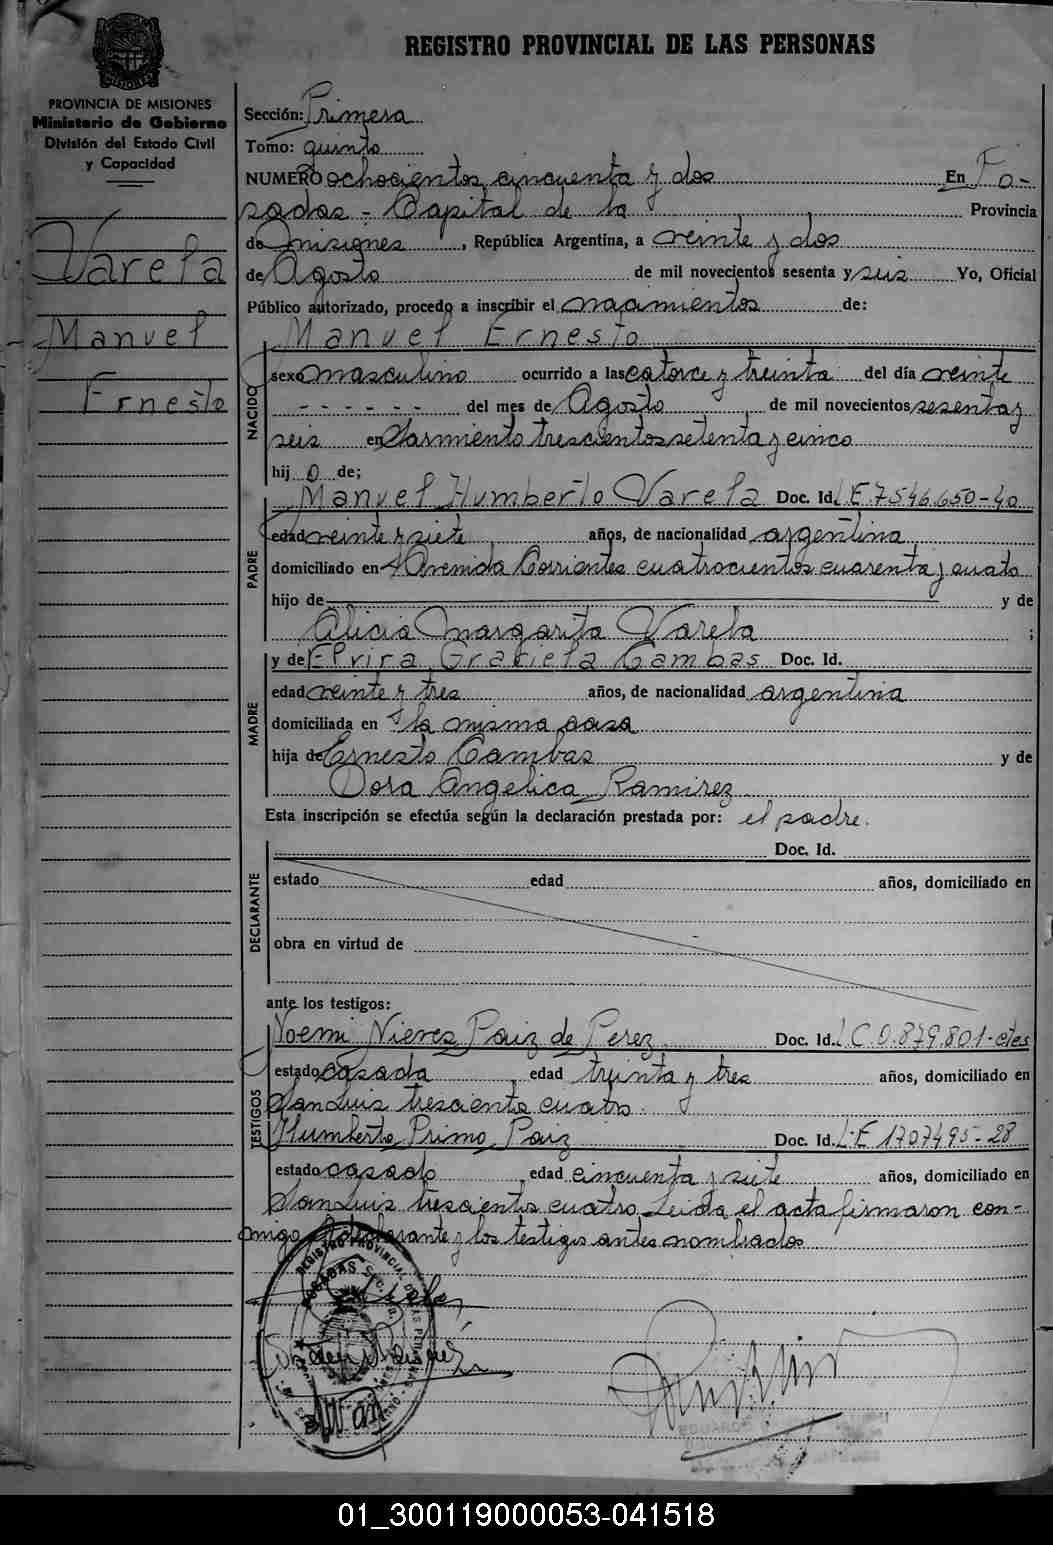 REGISTRO PROVINCIAL DE LAS PERSONAS
PROVINCIA DE MISIONES
Ministerio de Gobierno
División del Estado Civil
y Capacidad
Varela
Manuel
Ernesto
Sección: Primera
Tomo: quinto
NUMERO ochocientos cincuenta y dos En Po-
sadas - Capital de la Provincia
de misiones, República Argentina, a veinte y dos
de Agosto de mil novecientos sesenta y seis Yo, Oficial
Público autorizado, procedo a inscribir el nacimientos de:
NACIDO
Manuel Ernesto
sexo masculino ocurrido a las catorce y treinta del día veinte
- - - - - - del mes de Agosto de mil novecientos sesenta y
seis en Sarmiento trescientos setenta y cinco
hij o de;
PADRE
Manuel Humberto Varela Doc. Id. L.E. 7.546.650-40
edad veinte y siete años, de nacionalidad argentina
domiciliado en Avenida Corrientes cuatrocientos cuarenta y cuato
hijo de y de
Alicia Margarita Varela ;
MADRE
y de Elvira Graciela Cambas Doc. Id.
edad veinte y tres años, de nacionalidad argentina
domiciliada en la misma casa
hija de Ernesto Cambas y de
Dora Angelica Ramirez
Esta inscripción se efectúa según la declaración prestada por: el padre.
DECLARANTE
Doc. Id.
estado edad años, domiciliado en
obra en virtud de
ante los testigos:
TESTIGOS
Noemi Nieves Paiz de Perez Doc. Id. L.C.0.879.801-ctes
estado casada, edad treinta y tres años, domiciliado en
San Luis tresciento cuatro.
Humberto Primo Paiz Doc. Id. L.E 1707495-28
estado casado, edad cincuenta y siete años, domiciliado en
San Luis tresciento cuatro. Leida el acta firmaron con-
migo declarante y los testigos antes nombrados
REGISTRO PROVINCIAL DE LAS PERSONAS
POSADAS
01_300119000053-041518